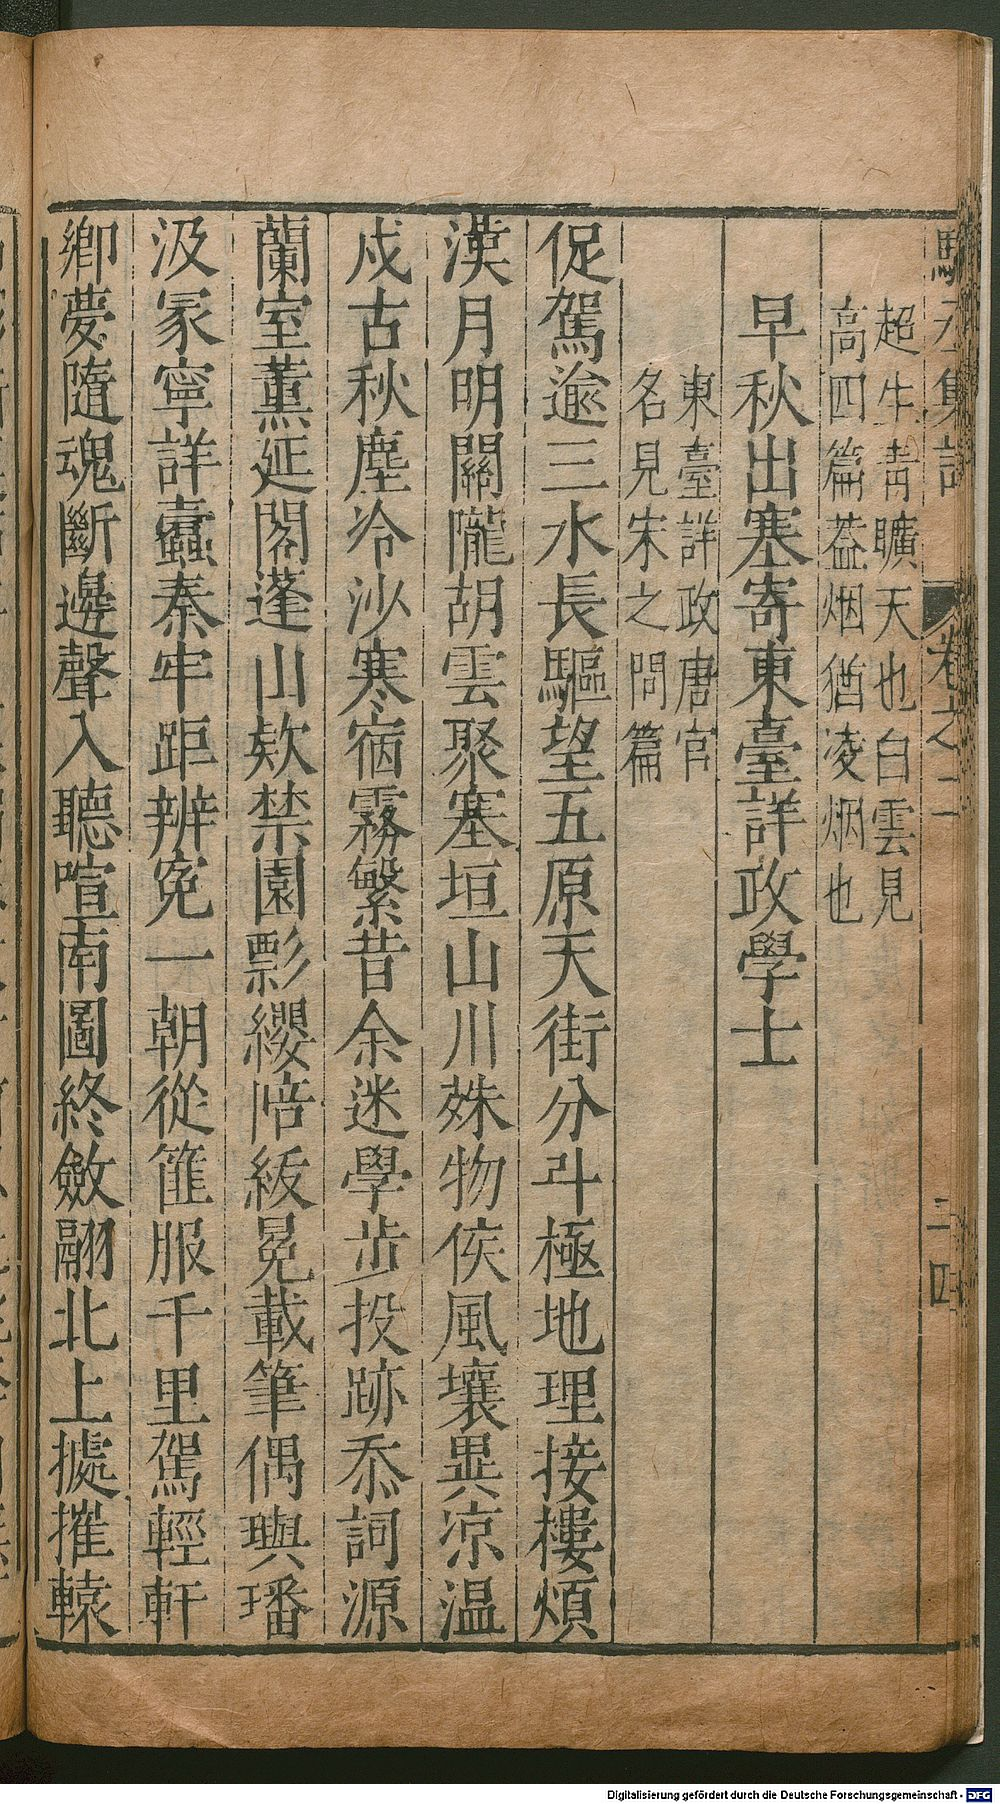 駱丞集註 卷之二 二四
超牛靑曠天也白雲見
高四篇葢烟猶凌烟也
早秋出塞寄東臺詳政學士
東臺詳政唐官
名見宋之問篇
促駕逾三水長驅望五原天街分斗極地理接樓煩
漢月明關隴胡雲聚塞垣山川殊物候風壤異凉温
戍古秋塵冷沙寒宿霧繁昔余迷學步投跡忝詞源
蘭室薰延閣蓬山欵禁園彯纓陪紱冕載筆偶璵璠
汲冢寧詳蠹秦牢距辨寃一朝從篚服千里駕輕軒
鄉夢隨魂斷邊聲入聽喧南圖終斂翮北上攄摧轅
Digitalisierung gefördert durch die Deutsche Forschungsgemeinschaft - DFG